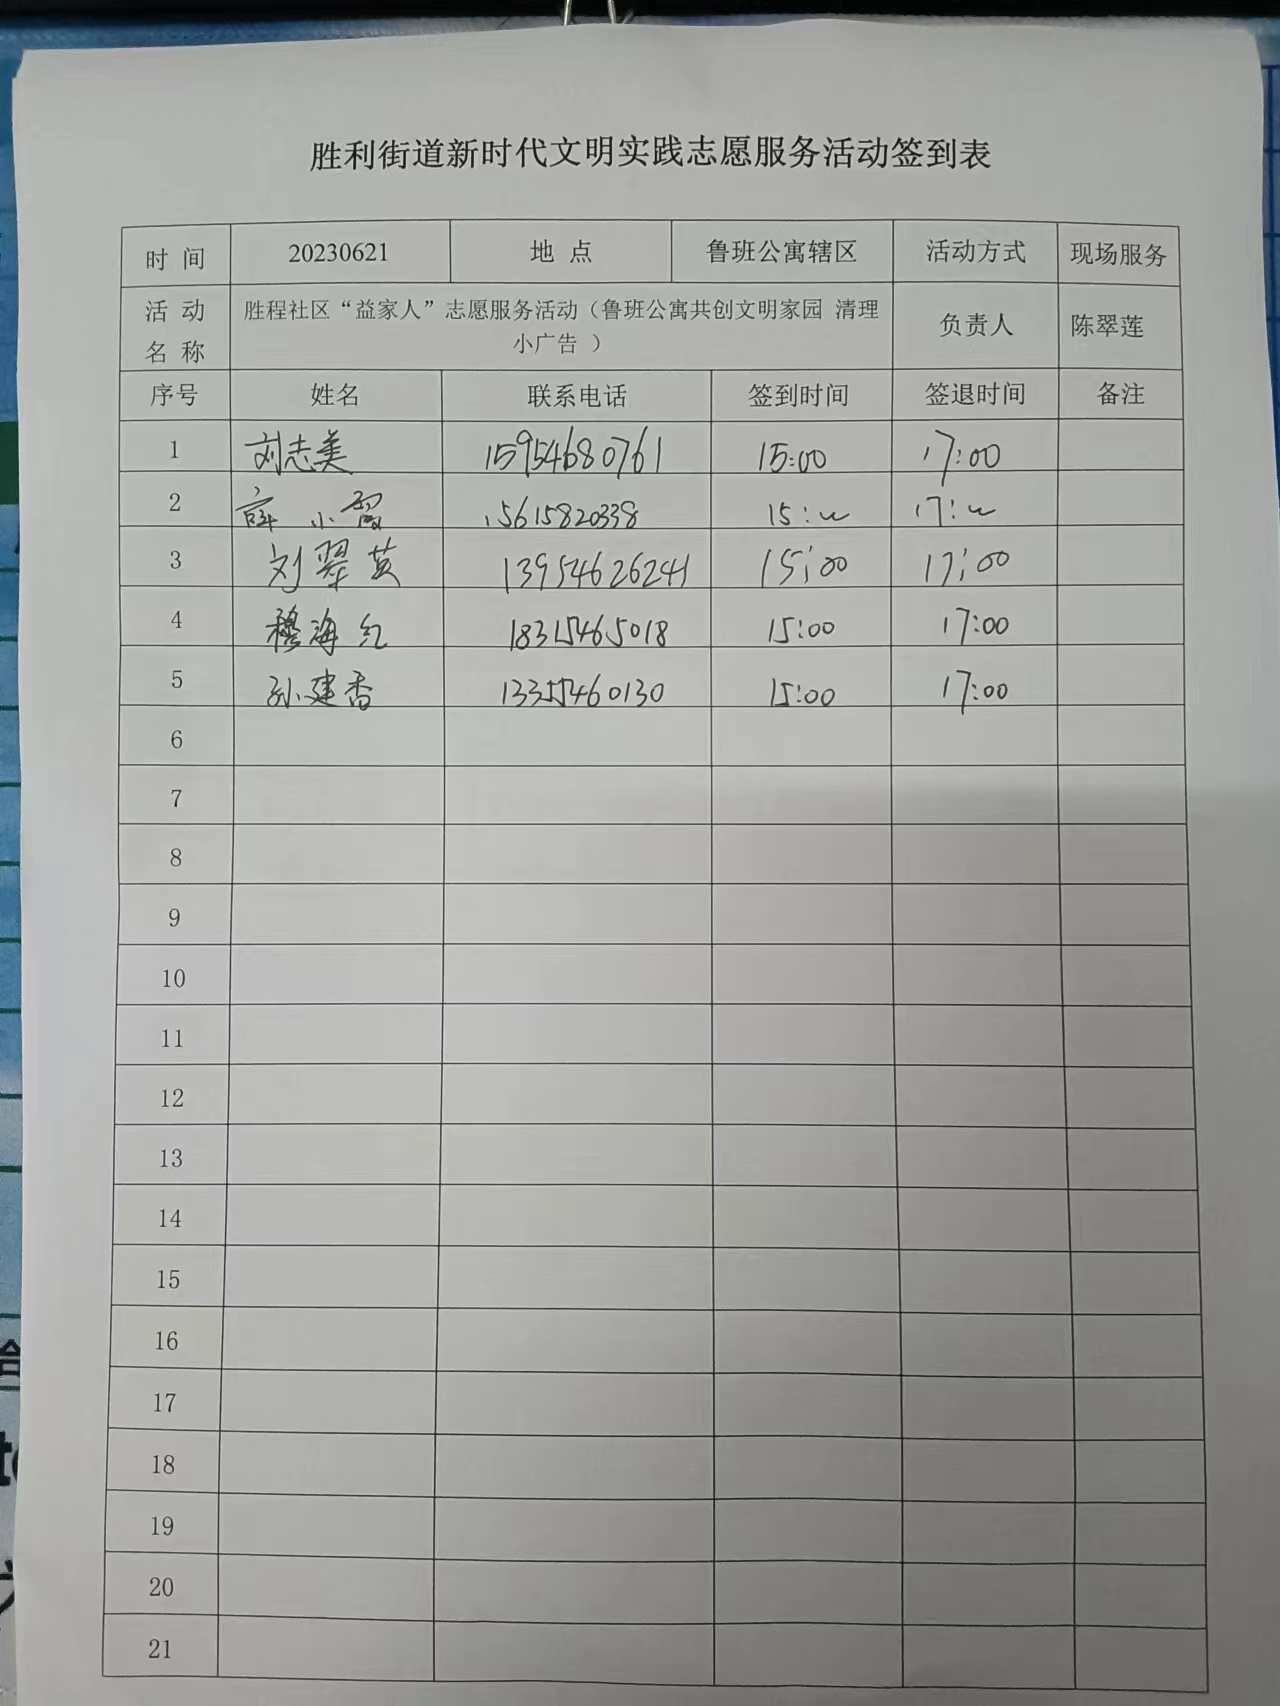 胜利街道新时代文明实践志愿服务活动签到表
时 间 20230621 地 点 鲁班公寓辖区 活动方式 现场服务
活 动 名 称 胜程社区“益家人”志愿服务活动（鲁班公寓共创文明家园 清理 负责人 陈翠莲
小广告 ）
序号 姓名 联系电话 签到时间 签退时间 备注
1 刘志美 15954680761 15:00 17:00
2 薛小霞 15615820338 15:00 17:00
3 刘翠英 13954626241 15:00 17:00
4 穆海红 18315465018 15:00 17:00
5 孙建香 13355460130 15:00 17:00
6
7
8
9
10
11
12
13
14
15
16
17
18
19
20
21